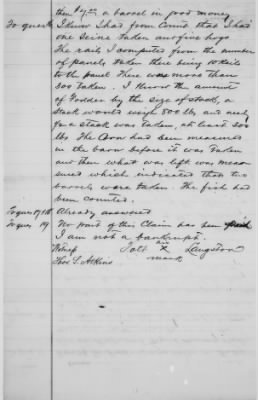 then $7.00 a barrel in good money
To ques I know I had from Count that I had
one Seine taken and five hogs
The rails I computed from the number
of panels taken there being 10 rails
to the panel There was more than
300 taken. I know the amount
of Fodder by the size of stack, a
stack would weigh 800 lbs and
for a stack was taken, at least 500
lbs The Corn had been measured
in the barn before it was taken
and then what was left was mea-
sured which indicated that two
barrels were taken. The fish had
been counted.
To ques 17, 18 Already answered
To ques 19 No part of this Claim has been paid
I am not a bankrupt.
his
Witness Tolt X Langston
mark
Thos S. Atkins